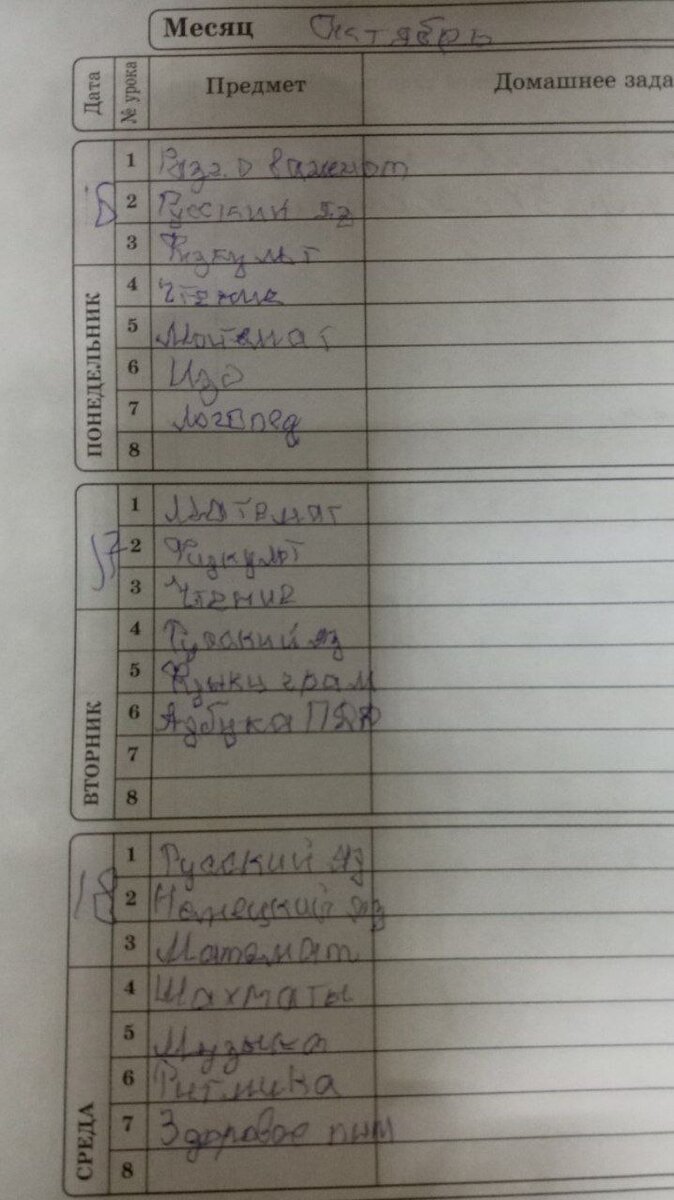 Месяц Октябрь
Дата № урока Предмет Домашнее зада
ПОНЕДЕЛЬНИК
1 Разг. о важном
2 Русский яз
3 Физкульт
4 Чтение
5 Математ
6 Изо
7 Логопед
8
17
ВТОРНИК
1 Математ
2 Физкульт
3 Чтение
4 Русский яз
5 грам
6 Азбука ПДД
7
8
18
СРЕДА
1 Русский яз
2 Немецкий яз
3 Математ
4 Шахматы
5 Музыка
6 Ритмика
7 Здоровое
8